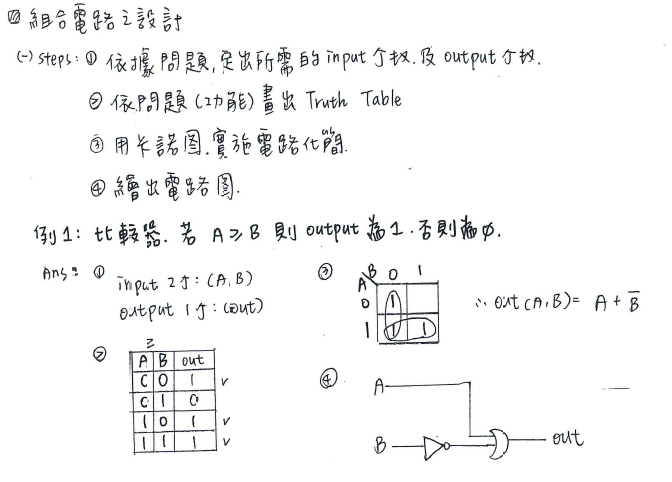 四 組合電路之設計
(一) steps: ① 依據問題,定出所需的 input 个数.及 output 个数.
② 依問題(功能)畫出 Truth Table
③ 用卡諾图.實施電路化簡.
④ 繪出電路圖.
例1: 比較器. 若 A≥B 則 output 為1.否則為∅.
Ans: ①
input 2个: (A,B)
output 1个: (out)
②
≥
A B out
0 0 1 v
0 1 0
1 0 1 v
1 1 1 v
③
B 0 1
A
0 1
1 1 1
∴ out(A,B)= A + B̅
④
A
B
out